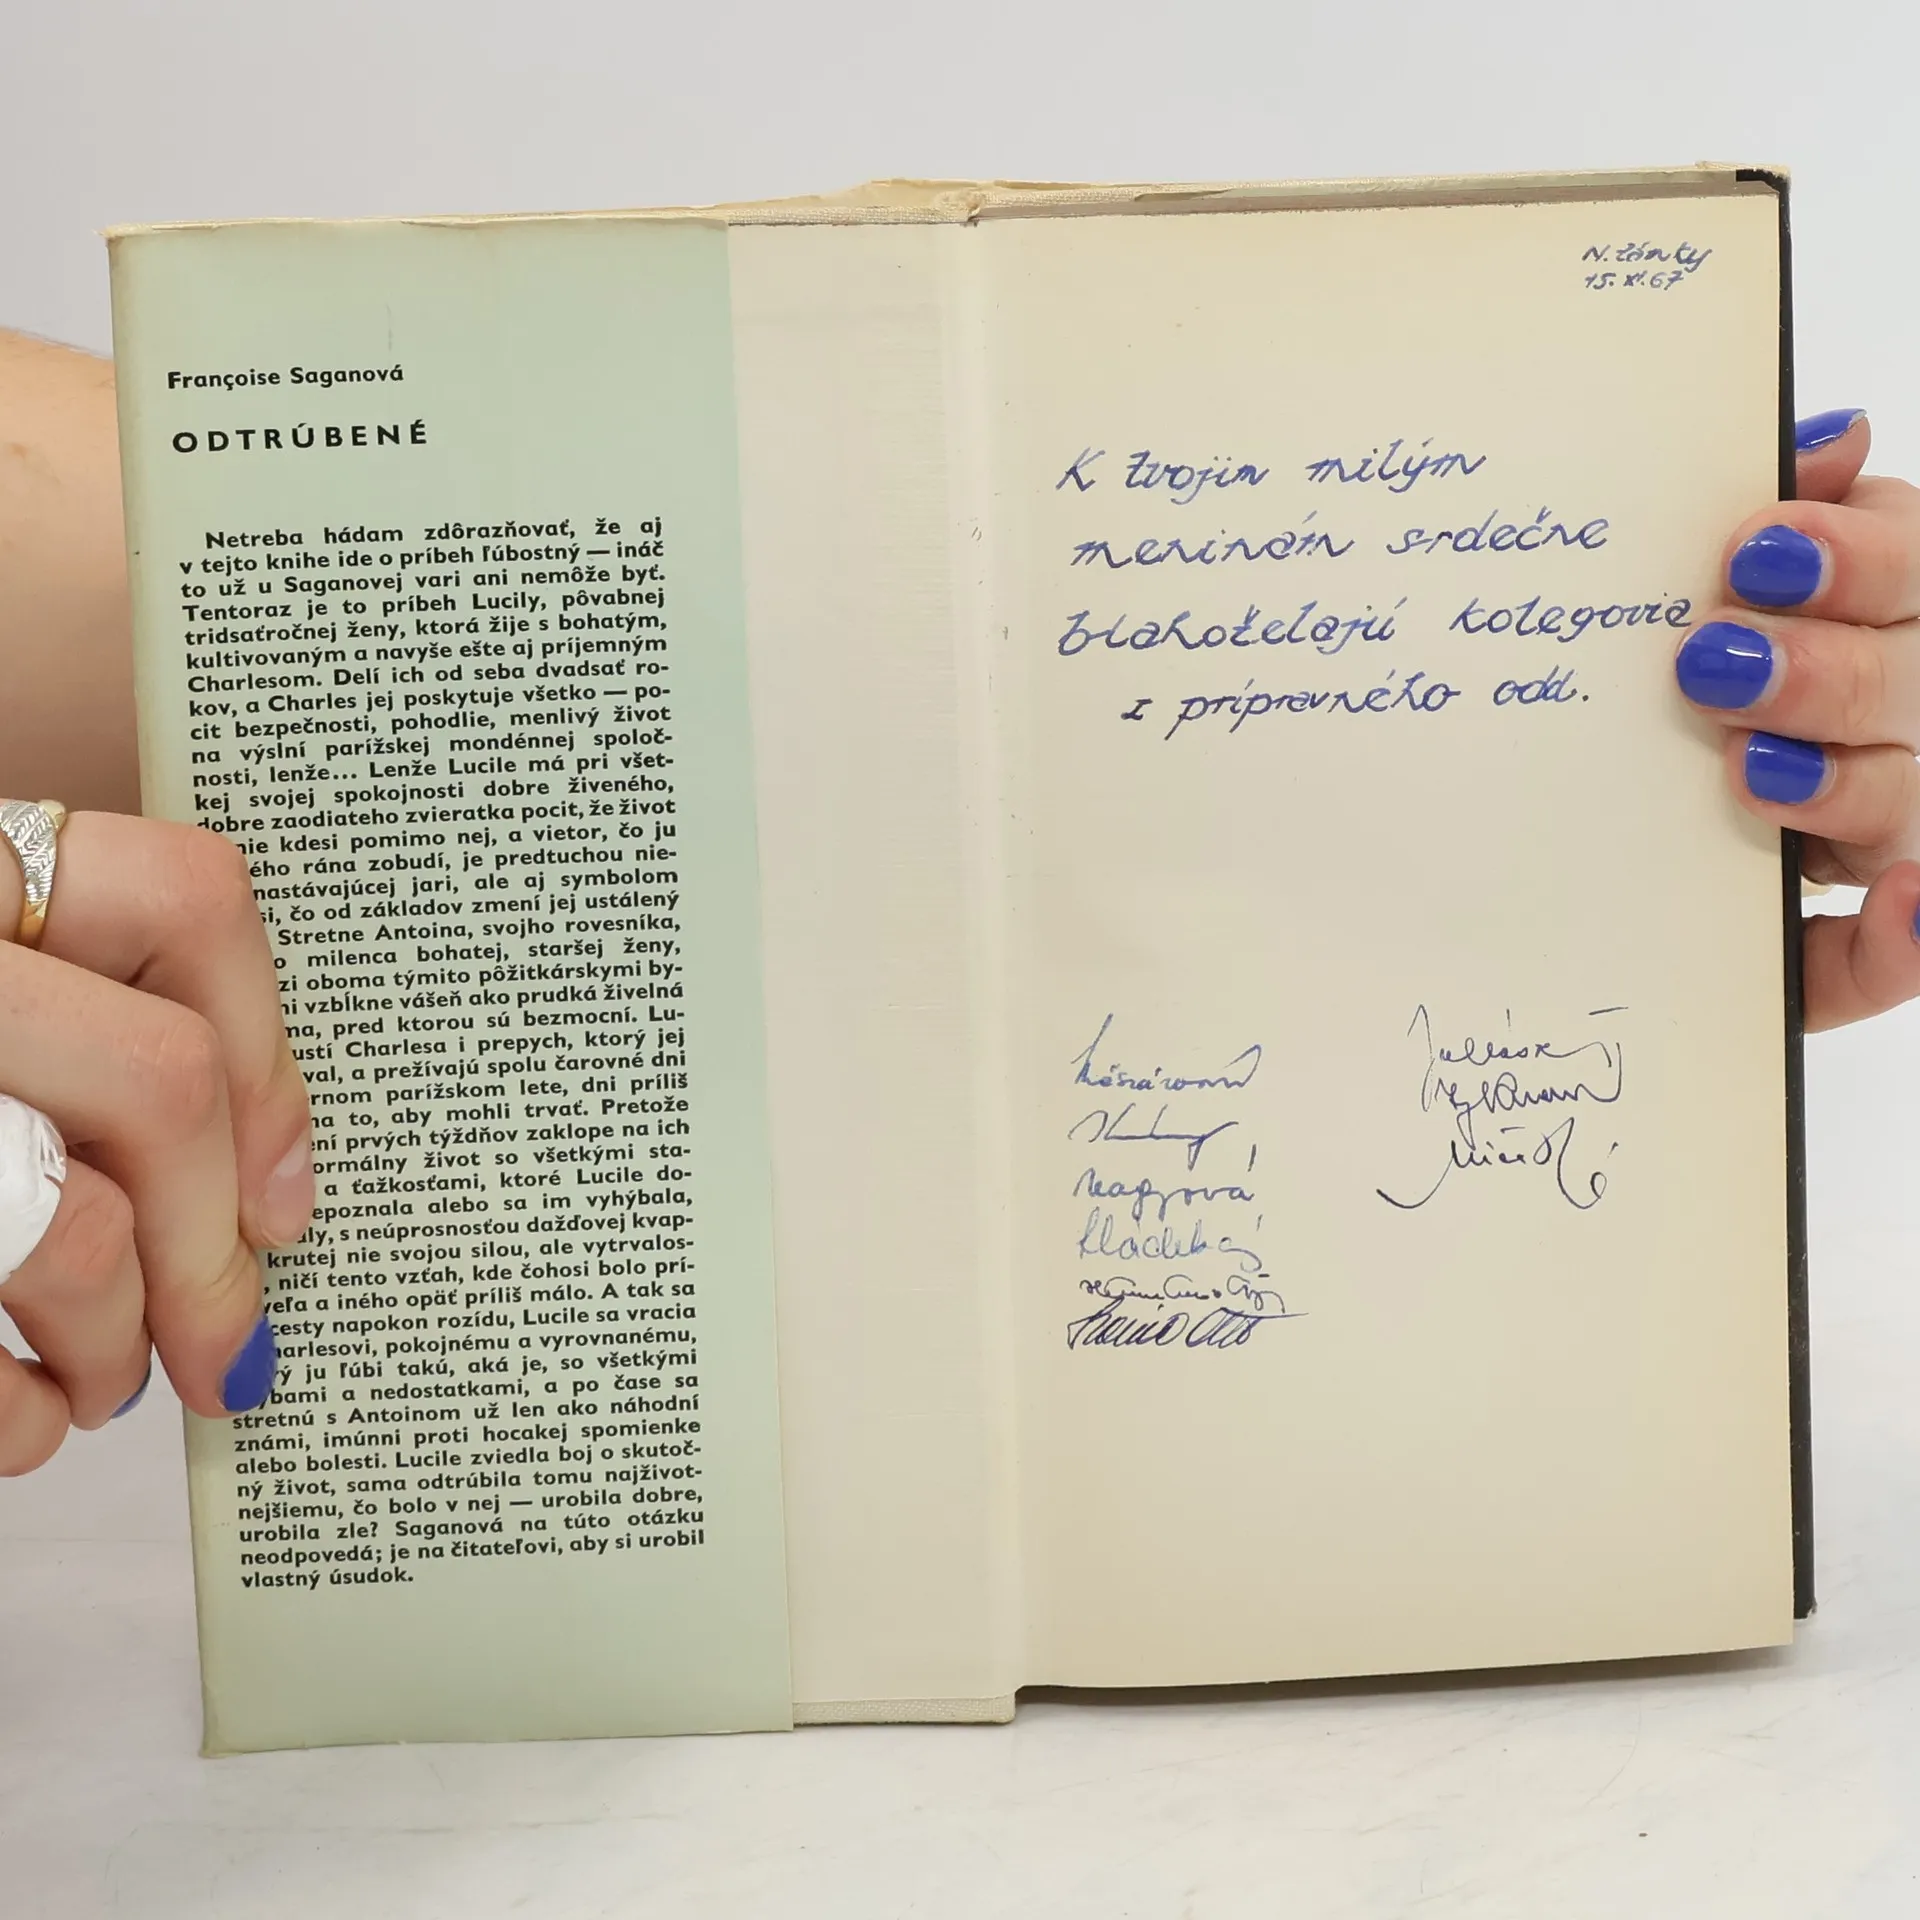 Françoise Saganová
ODTRÚBENÉ
Netreba hádam zdôrazňovať, že aj
v tejto knihe ide o príbeh ľúbostný — ináč
to už u Saganovej vari ani nemôže byť.
Tentoraz je to príbeh Lucily, pôvabnej
tridsaťročnej ženy, ktorá žije s bohatým,
kultivovaným a navyše ešte aj príjemným
Charlesom. Delí ich od seba dvadsať ro-
kov, a Charles jej poskytuje všetko — po-
cit bezpečnosti, pohodlie, menlivý život
na výslní parížskej mondénnej spoloč-
nosti, lenže... Lenže Lucile má pri všet-
kej svojej spokojnosti dobre živeného,
dobre zaodiateho zvieratka pocit, že život
nie kdesi pomimo nej, a vietor, čo ju
ého rána zobudí, je predtuchou nie-
nastávajúcej jari, ale aj symbolom
si, čo od základov zmení jej ustálený
Stretne Antoina, svojho rovesníka,
o milenca bohatej, staršej ženy,
zi oboma týmito pôžitkárskymi by-
ni vzbĺkne vášeň ako prudká živelná
ma, pred ktorou sú bezmocní. Lu-
ustí Charlesa i prepych, ktorý jej
val, a prežívajú spolu čarovné dni
rnom parížskom lete, dni príliš
na to, aby mohli trvať. Pretože
ení prvých týždňov zaklope na ich
ormálny život so všetkými sta-
a ťažkosťami, ktoré Lucile do-
epoznala alebo sa im vyhýbala,
aly, s neúprosnosťou dažďovej kvap-
krutej nie svojou silou, ale vytrvalos-
, ničí tento vzťah, kde čohosi bolo prí-
veľa a iného opäť príliš málo. A tak sa
cesty napokon rozídu, Lucile sa vracia
harlesovi, pokojnému a vyrovnanému,
rý ju ľúbi takú, aká je, so všetkými
ybami a nedostatkami, a po čase sa
stretnú s Antoinom už len ako náhodní
známi, imúnni proti hocakej spomienke
alebo bolesti. Lucile zviedla boj o skutoč-
ný život, sama odtrúbila tomu najživot-
nejšiemu, čo bolo v nej — urobila dobre,
urobila zle? Saganová na túto otázku
neodpovedá; je na čitateľovi, aby si urobil
vlastný úsudok.
N. Zámky
15. XI. 67
K tvojim milým
meninám srdečne
blahoželajú kolegovia
z prípravného odd.
Nagyová